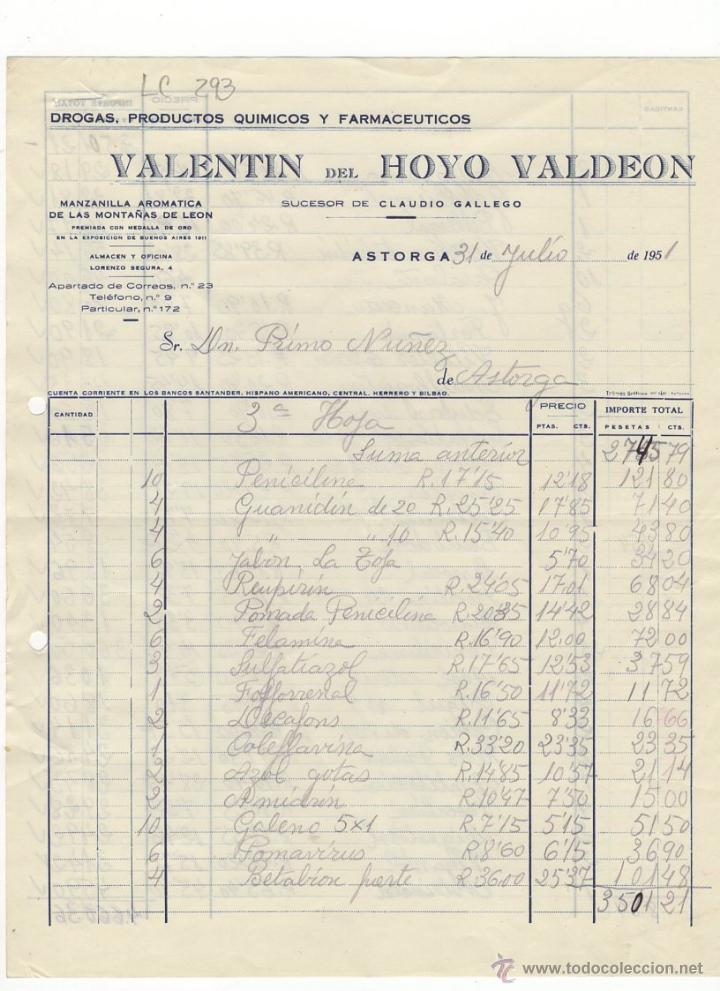 LC 293
DROGAS, PRODUCTOS QUIMICOS Y FARMACEUTICOS
VALENTIN DEL HOYO VALDEON
MANZANILLA AROMATICA
DE LAS MONTAÑAS DE LEON
PREMIADA CON MEDALLA DE ORO
EN LA EXPOSICION DE BUENOS AIRES 1911
ALMACEN Y OFICINA
LORENZO SEGURA, 4
Apartado de Correos, n.º 23
Teléfono, n.º 9
Particular, n.º 172
SUCESOR DE CLAUDIO GALLEGO
ASTORGA 31 de Julio de 1951
Sr. Dn. Primo Nuñez
de Astorga
CUENTA CORRIENTE EN LOS BANCOS SANTANDER, HISPANO AMERICANO, CENTRAL, HERRERO Y BILBAO.
CANTIDAD PRECIO IMPORTE TOTAL
PTAS. CTS. PESETAS CTS.
3ª Hoja
Suma anterior 2745 79
10 Peniciline R.17'15 12'18 121 80
4 Guanidin de 20 R.25'25 17'85 71 40
4 " " 10 R.15'40 10'95 43 80
6 Jabon La Toja 5'70 34 20
4 R.24'05 17'01 68 04
2 Pomada Penicilina R.20'35 14'42 28 84
6 Felamina R.16'90 12'00 72 00
3 Sulfatiazol R.17'65 12'53 37 59
1 R.16'50 11'72 11 72
2 R.11'65 8'33 16 66
1 R.33'20 23'35 23 35
2 Azol gotas R.14'85 10'57 21 14
2 Amidrin R.10'47 7'50 15 00
10 Galeno 5x1 R.7'15 5'15 51 50
6 Pomavirus R.8'60 6'15 36 90
4 Betabion fuerte R.36'00 25'37 101 48
3501 21
www.todocoleccion.net